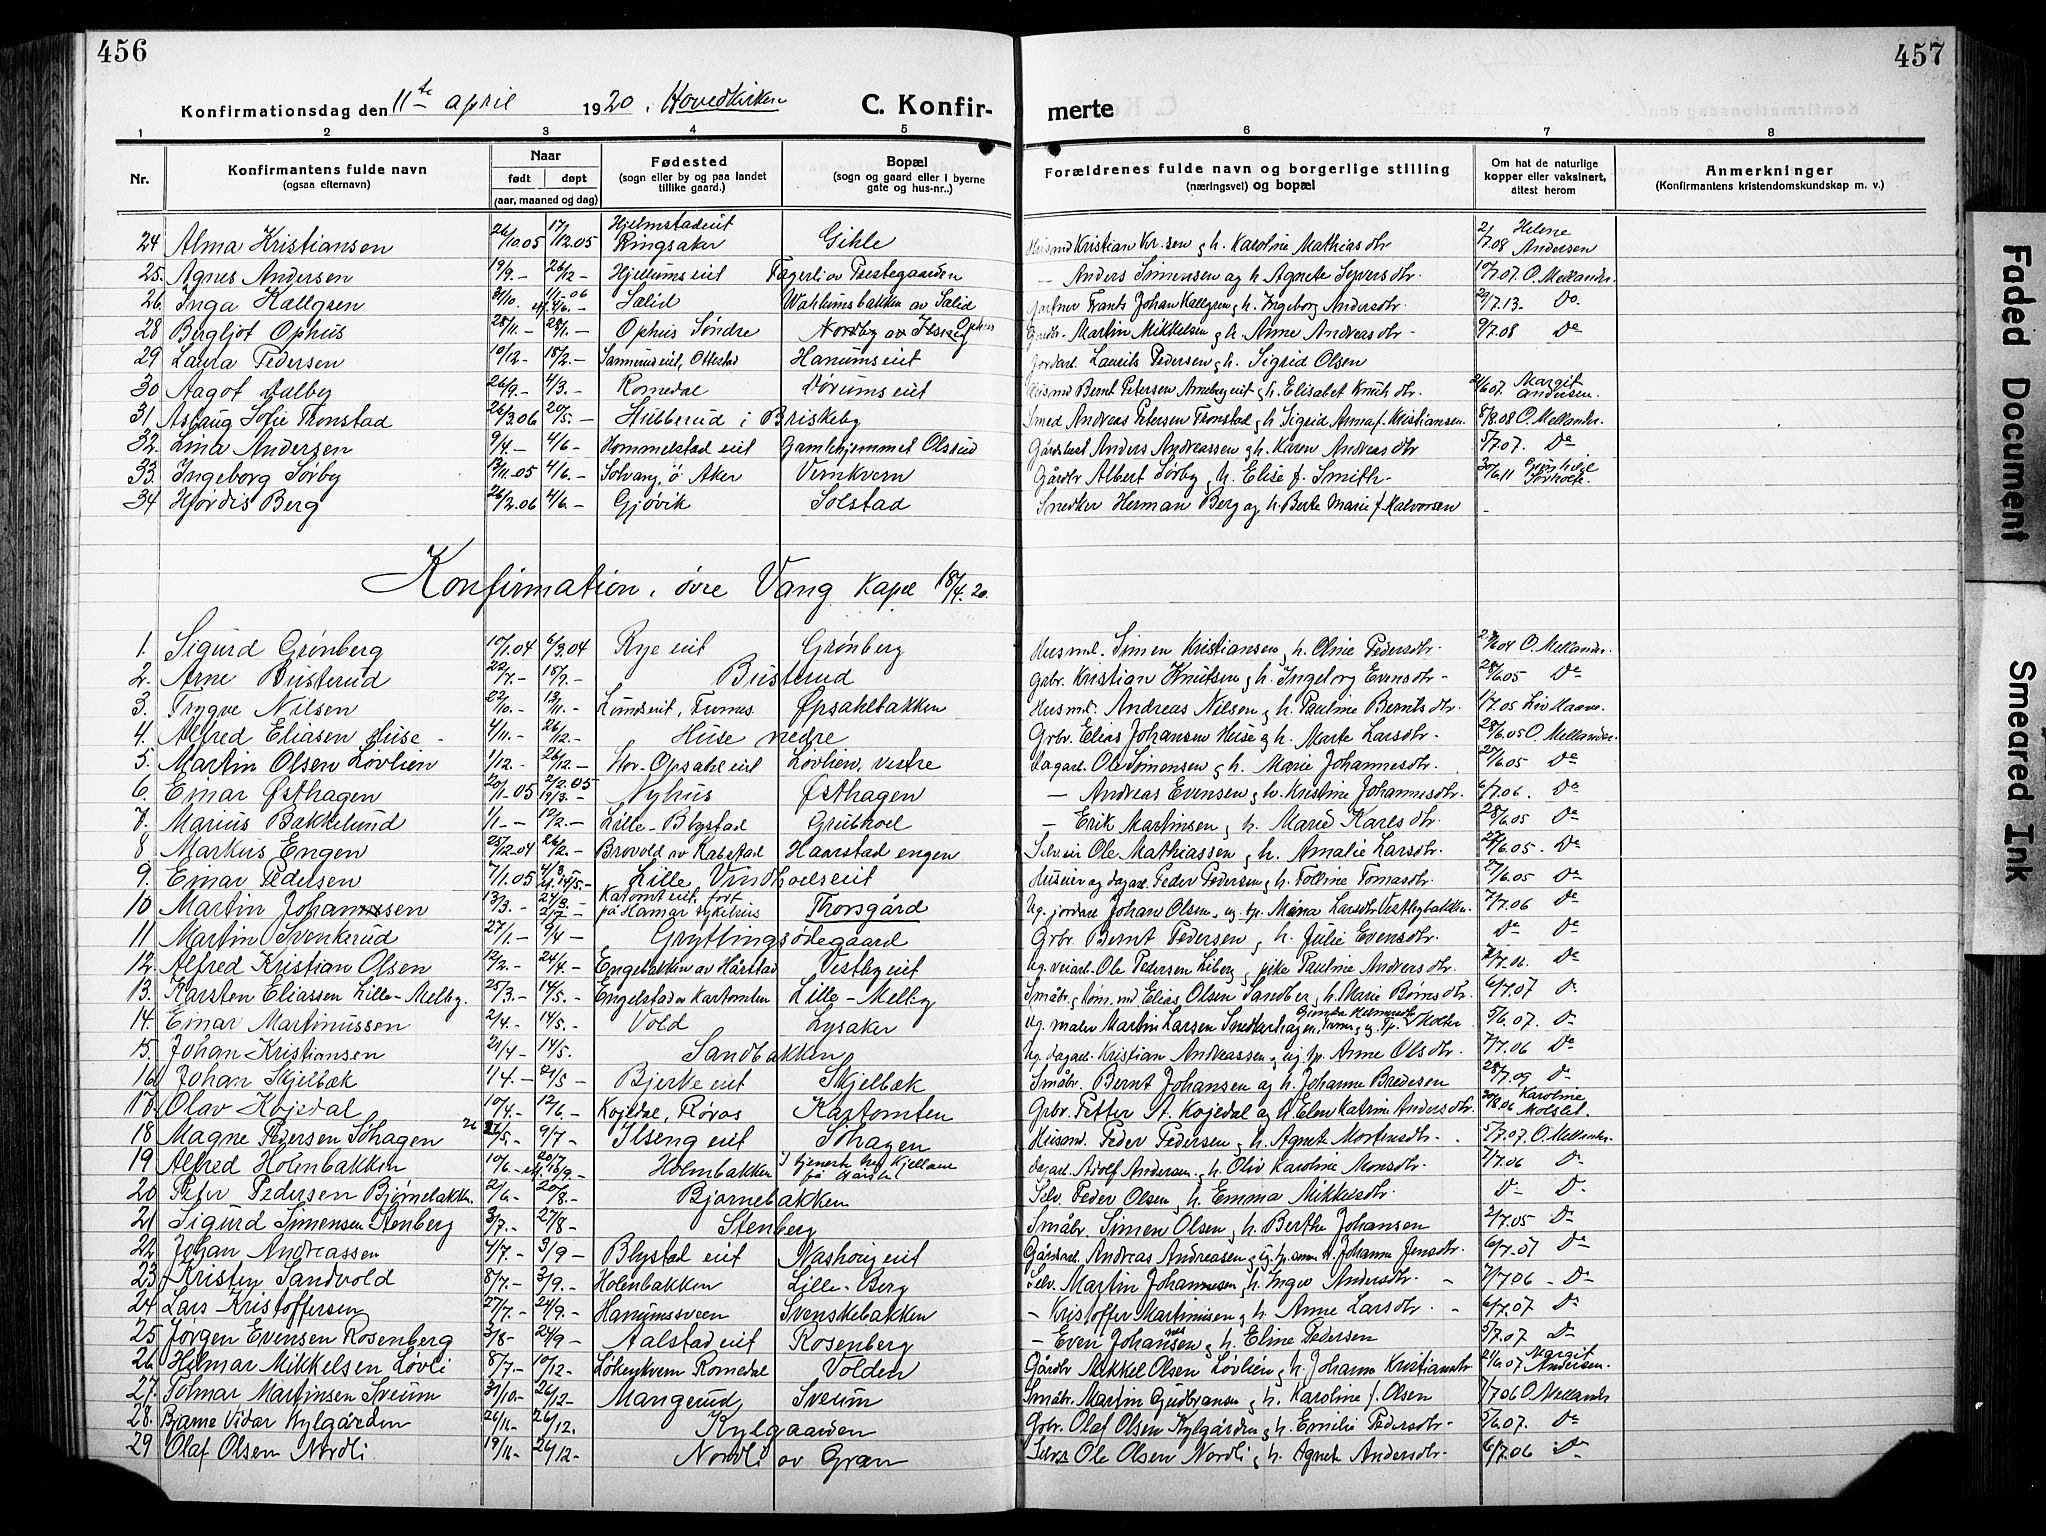 456
457
Konfirmationsdag den 11te april 1920 i Hovedkirken C. Konfir-
merte
1 2 3 4 5 6 7 8
Nr.
Konfirmantens fulde navn
(ogsaa efternavn)
Naar
født døpt
(aar, maaned og dag)
Fødested
(sogn eller by og paa landet
tillike gaard.)
Bopæl
(sogn og gaard eller i byerne
gate og hus-nr..)
Forældrenes fulde navn og borgerlige stilling
(næringsvei) og bopæl
Om hat de naturlige
kopper eller vaksinert,
attest herom
Anmerkninger
(Konfirmantens kristendomskundskap m. v.)
24 Alma Kristiansen 26/10.05 17/12.05 Hjelmstadeit Ringsaker Gihle Husmd Kristian Kr.sen g h. Karoline Mathiasdtr 2/7.08 Helene Andersen
25. Agnes Andersen 19/9.– 26/12– Hjellumseit Fagerli av Prestegaarden – Anders Simensen og h. Agnete Syversdtr. 10/7.07. O. Mellander.
26. Inga Hallgren 31/10. 1/1-06 Salid Wahlumsbakken av Salid Gartner Frants Johan Hallgren g h. Ingeborg Andersdtr. 29/7.13. Do.
28 Bergljot Ophus 28/11.– 28/1.– Ophus Søndre Nordby av Ophus Gardbr. Martin Mikkelsen g h. Anne Andreasdtr – 9/7.08 Do
29 Laura Pedersen 10/12– 18/2.– Sannerudeit, Ottestad Hanumseit Jordarb. Laurits Pedersen g h. Sigrid Olsen
30 Aagot Dalby 26/9.– 4/3.– Romedal Dørumseit Husmd Bernt Petersen Arnebergeit g h. Elisabet Knutsdtr. 21/6 07. Margit Andersen.
31, Aslaug Sofie Tronstad 26/3.06 20/5.– Hubberud i Briskeby Smed Andreas Petersen Tronstad g h. Sigrid Anna f. Kristiansen. 5/8.08 O. Mellander.
32. Lina Andersen 9/4.– 4/6– Hommelstadeit Gamlehjemmet Olsrud Gårdsbest Anders Andreassen g h. Karen Andreasdtr 5/7.07. Do
33. Ingeborg Sørby 13/11.05 4/6.– Solvang, ø Aker Vernkvern Gårdbr Albert Sørby g h. Elise f. Smith – 30/6.11
34 Hjørdis Berg 26/2.06 4/6.– Gjøvik Solstad Snedker Herman Berg og h. Berte Marie f. Halvorsen –
Konfirmation i øvre Vang kapel 18/4.20.
1. Sigurd Grønberg 10/1.04 6/3.04 Ryeeit Grønberg Husmd. Simen Kristiansen g h. Oline Pedersdtr. O. Mellander.
2. Arne Busterud 22/7.– 18/9.– Busterud Grbr. Kristian Knutsen g h. Ingeborg Evensdtr – 28/6.05 Do
3. Trygve Nilsen 22/10.– 13/11.– Lundseit, Furnes. Øpsahlbakken Husmd. Andreas Nilsen g h. Pauline Berntsdtr. 1/7.05
4. Alfred Eliasen Huse – 4/11.– 26/12.– Huse nedre Grbr. Elias Johansen Huse g h. Marte Larsdtr. 28/6.05 O. Mellander.
5. Martin Olsen Løvlien 1/12.– 26/12– Hov-Opsahleit Løvlien, vestre Dagarb. Ole Simensen g h. Marie Johannesdtr. 27/6.05 Do
6. Einar Østhagen 20/1.05 2/2.05 19/3.– Nyhus Østhagen – Andreas Evensen g h. Kristine Johannesdtr. 6/7.06. Do
7. Marius Bakkelund 1/1.– 19/2.– Lille-Blystad Grubhoel – Erik Martinsen g h. Marie Karlsdtr. 28/6.05 Do
8 Markus Engen 25/12.04 26/2.– Brovold av Kabstad Haarstadengen Selveier Ole Mathiassen g h. Amalie Larsdtr. 27/6.05. Do
9. Einar Pedersen 7/1.05 Lille Vindhoelseit Huseier og dagarb. Peder Pedersen g h. Polline Tomasdtr. 7/6.05 Do
10 Martin Johannessen 13/3.– Kartomteit, født på Hamar sykehus Thorsgård Ug. jordarb Johan Olsen Mina Larsdtr Vestbybakken. 7/7.06 Do
11 Martin Svenkerud 27/1.– 9/4– Gryttingsødegaard Grbr. Bernt Pedersen g h. Julie Evensdtr. Do Do
12. Alfred Kristian Olsen 12/2.– 24/4.– Engebakken av Hårstad Vestbyeit Ug. veiarb. Ole Pedersen Liberg g pike Pauline Andersdtr. 7/7.06. Do
13. Karsten Eliassen Lille-Melby. 25/3.– 14/5.– Engelstad ev Kartomten Lille-Melby Småbr. g tøm.md Elias Olsen Sandber g h. Marie Børnsdtr. 6/7.07 Do
14. Einar Martinussen 2/4.– 14/5.– Vold Lysaker Ug. maler Martin Larsen Snekkerhagen 5/6.07. Do
15. Johan Kristiansen 21/4– 14/5. Sandbakken Ug. dagarb. Kristian Andreassen g ug. tp. Anne Olsdtr. 7/7.06 Do
16. Johan Skjelbæk 1/4.– 21/5– Bjerkeeit Skjelbæk Småbr. Bernt Johansen og h. Johanne Bredesen 28/7.09 Do
17. Olav Kojedal 10/4.– 12/6.– Kojedal, Røros Kartomten Grbr. Petter St. Kojedal og h. Elen Katrine Andersdtr. 30/8.06 Karoline Molslet.
18 Magne Pedersen Søhagen 26/5.– 9/7– Ilsengeit Søhagen Husmd. Peder Pedersen g h. Agnete Mortensdtr – 5/7.07. O. Mellander.
19 Alfred Holmbakken 10/6.– Holmbakken I tjeneste hos Kjelland på Dagarb. Adolf Andersen g h. Oliv Karoline Monsdtr. 7/7.06 Do
20 Peter Pedersen Bjørnebakken. 2/6– 20/8.– Bjørnebakken Selv. Peder Olsen g h. Emma Mikkelsdtr. Do Do
21 Sigurd Simensen Stenberg 3/7.– 27/8– Stenberg Småbr. Simen Olsen g h. Berthe Johansen 2/7.05 Do
22 Johan Andreassen 4/7.– 3/9– Blystadeit Nashougeit Gårdarb. Andreas Andreasen g Johanne Jensdtr. 6/7.07 Do
23 Kristen Sandvold 8/7.– 3/9.– Holmbakken Lille-Berg Selv. Martin Johannesen g h. Inger Andersdtr. – 7/7.06 – Do –
24 Lars Kristoffersen 27/7.– 24/9.– Hanumssveen Svenskebakken – Kristoffer Martinusen g h. Anne Larsdtr. – 6/7.07 Do
25 Jørgen Evensen Rosenberg 3/8– 24/9– Aalstadeit Rosenberg – Even Johansen g h. Eline Pedersen 5/7.07 Do
26. Hilmar Mikkelsen Løvli 8/7.– 10/12.– Løkenkvern Romedal Volden Gårdbr Mikkel Olsen Løvlien g h. Johanne Kristiansdtr. 21/6.07 Margit Andersen.
27. Tolmar Martinsen Sveum 31/10.– 26/12– Mangerud Sveum Småbr. Martin Gudbransen g h. Karoline f. Olsen 7/7.06 O. Mellander
28. Bjarne Vidar Kylgården 26/11.– 26/12. Kylgaarden Grbr. Olaf Olsen Kylgården g h. Emilie Pedersdtr – 5/6.07. Do
29 Olaf Olsen Nordli 19/11– 26/12– Nordli av Gran Selv. Ole Olsen Nordli g h. Agnete Andersdtr – 6/7.06 Do
Faded Document
Smeared Ink